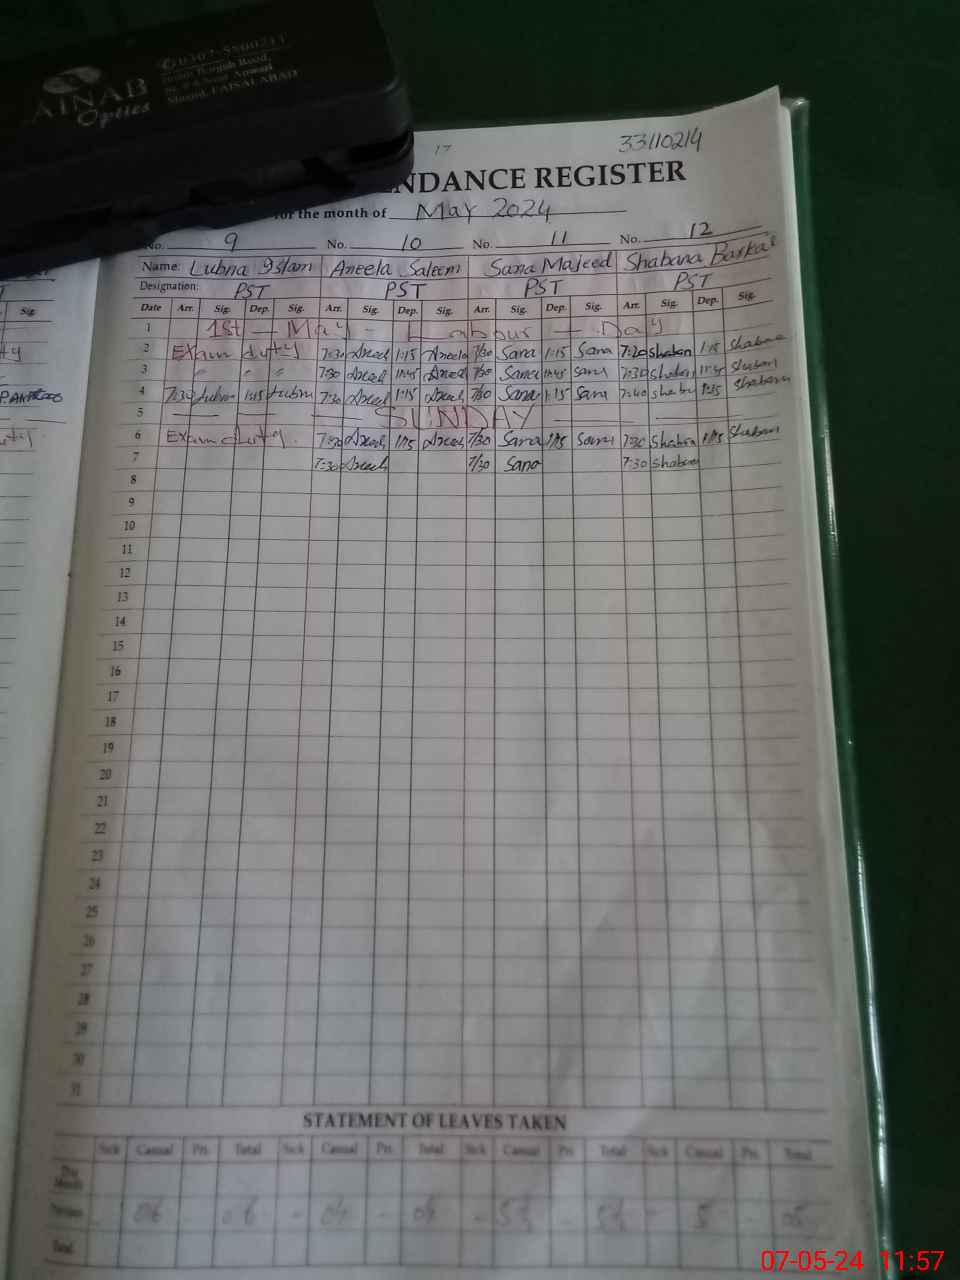 AINAB
Optics
17
33110214
NDANCE REGISTER
for the month of May 2024
No. 9 No. 10 No. 11 No. 12
Name: Lubna Islam Aneela Saleem Sana Majeed Shabana Barkat
Designation: PST PST PST PST
Date Arr. Sig. Dep. Sig. Arr. Sig. Dep. Sig. Arr. Sig. Dep. Sig. Arr. Sig. Dep. Sig.
1 1st - May - Labour - Day
2 Exam duty 7:30 1:15 Aneela 7/30 Sana 1:15 Sana 7:20 Shaban 1:15 Shabana
3 " " " 7:30 11:45 7/30 Sana 11:45 Sana 7:30 Shaban Shaban
4 7:30 Lubna 1:15 Lubna 7:30 1:15 7/30 Sana 1:15 Sana 7:40 Shabana
5 SUNDAY
6 Exam duty. 7:30 1:15 7/30 Sana 1:15 Sana 7:30 Shabana 1:15 Shaban
7 7:30 7/30 Sana 7:30 Shaban
8
9
10
11
12
13
14
15
16
17
18
19
20
21
22
23
24
25
26
27
28
29
30
31
STATEMENT OF LEAVES TAKEN
Sick Casual Pri. Total Sick Casual Pri. Total Sick Casual Pri. Total Sick Casual Pri. Total
Total
07-05-24 11:57